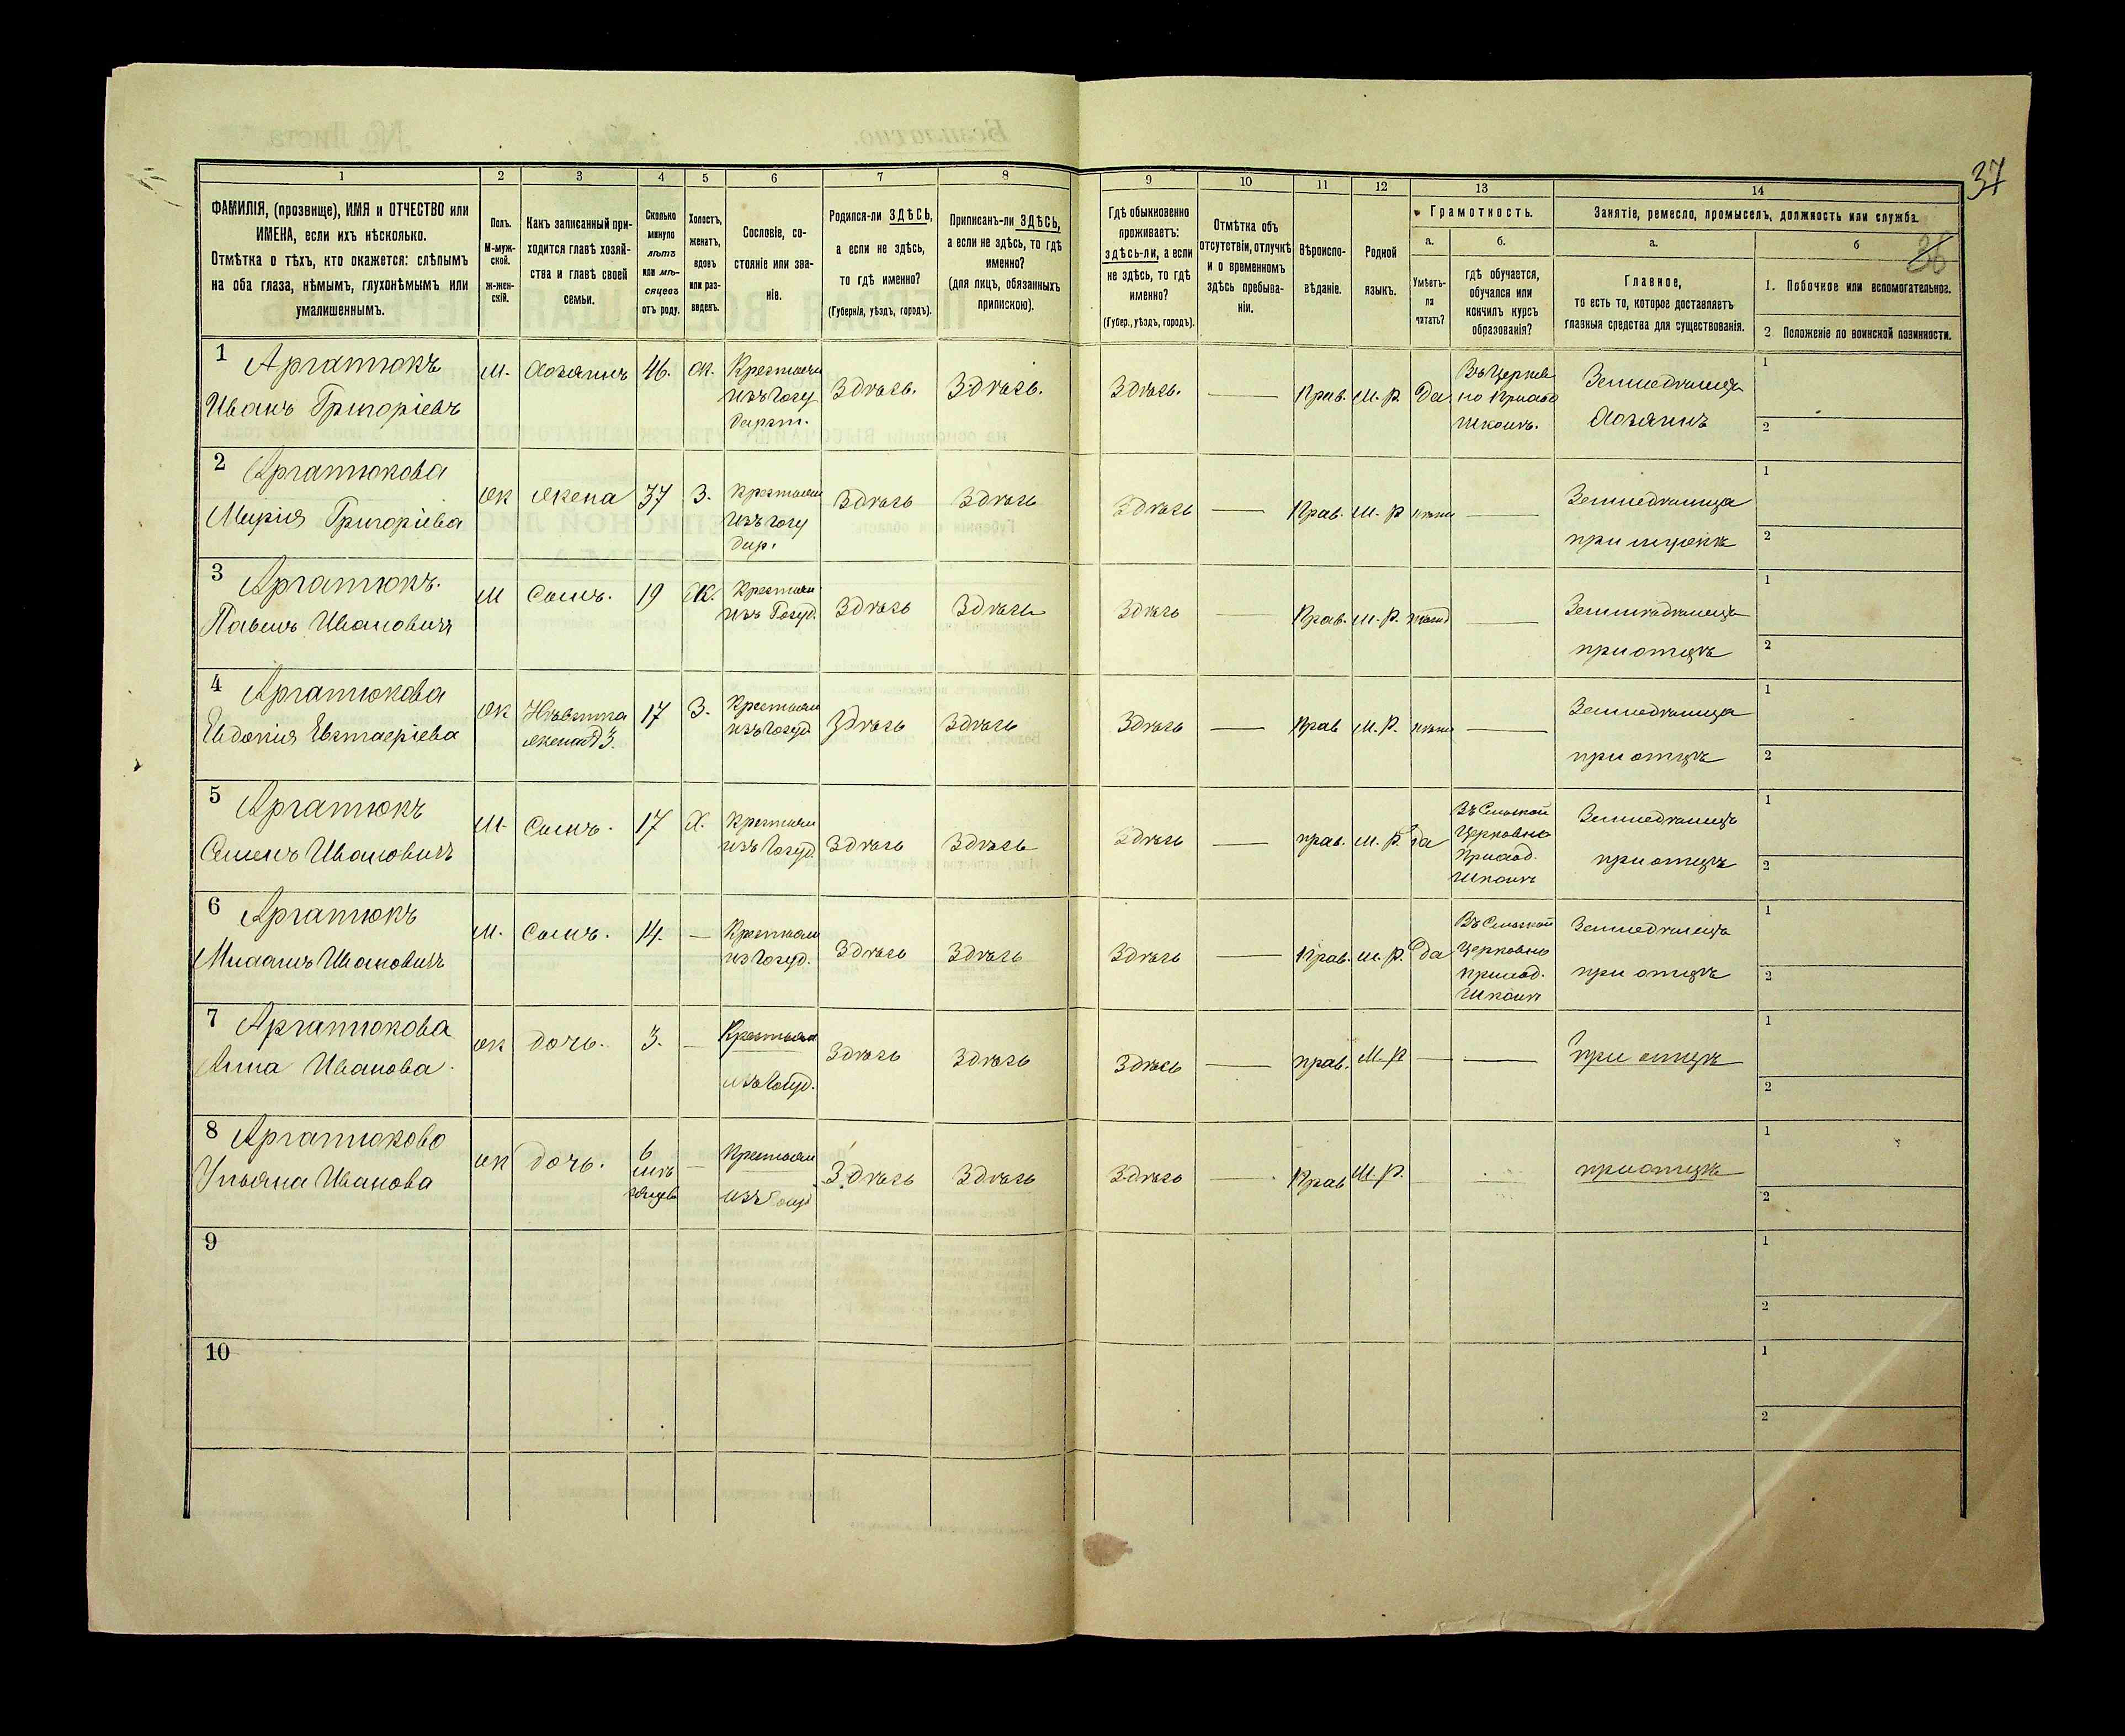 37
36
1
2
3
4
5
6
7
8
9
10
11
12
13
14
ФАМИЛІЯ, (прозвище), ИМЯ и ОТЧЕСТВО или
ИМЕНА, если ихъ нѣсколько.
Отмѣтка о тѣхъ, кто окажется: слѣпымъ
на оба глаза, нѣмымъ, глухонѣмымъ или
умалишеннымъ.
Полъ.
М-муж-
ской.
ж-жен-
скій.
Какъ записанный при-
ходится главѣ хозяй-
ства и главѣ своей
семьи.
Сколько
минуло
лѣтъ
или мѣ-
сяцевъ
отъ роду.
Холостъ,
женатъ,
вдовъ
или раз-
веденъ.
Сословіе, со-
стояніе или зва-
ніе.
Родился-ли ЗДѢСЬ,
а если не здѣсь,
то гдѣ именно?
(Губернія, уѣздъ, городъ).
Приписанъ-ли ЗДѢСЬ,
а если не здѣсь, то гдѣ
именно?
(для лицъ, обязанныхъ
припискою).
Гдѣ обыкновенно
проживаетъ:
здѣсь-ли, а если
не здѣсь, то гдѣ
именно?
(Губер., уѣздъ, городъ).
Отмѣтка объ
отсутствіи, отлучкѣ
и о временномъ
здѣсь пребыва-
ніи.
Вѣроиспо-
вѣданіе.
Родной
языкъ.
Грамотность.
а.
Умѣетъ-
ли
читать?
б.
гдѣ обучается,
обучался или
кончилъ курсъ
образованія?
Занятіе, ремесло, промыселъ, должность или служба.
а.
Главное,
то есть то, которое доставляетъ
главныя средства для существованія.
б
1. Побочное или вспомогательное.
2. Положеніе по воинской повинности.
1 Аргатюкъ
Иванъ Григоріевъ
М. Хозяинъ 46. Ж. Крестьянъ
изъ Госу
дарст.
Здѣсь. Здѣсь. Здѣсь. — Прав. М. Р. Да
Въ Церков
но Приход
школѣ.
Земледѣлецъ
Хозяинъ
1
2
2 Аргатюкова
Марія Григоріева
Ж Жена 37 З. Крестьян
изъ Госу
дар.
Здѣсь Здѣсь Здѣсь — Прав. М. Р —
Земледѣлица
при мужѣ
1
2
3 Аргатюкъ.
Павелъ Ивановичъ
М Сынъ. 19 Ж. Крестьян
изъ Госуд.
Здѣсь Здѣсь Здѣсь — Прав. М. Р. —
Земледѣлецъ
при отцѣ
1
2
4 Аргатюкова
Евдокія Евстафіева
Ж Невѣстка
жена №3.
17 З. Крестьян
изъ Госуд
Здѣсь Здѣсь Здѣсь — Прав М. Р. —
Земледѣлица
при отцѣ
1
2
5 Аргатюкъ
Семенъ Ивановичъ
М. Сынъ. 17 Х. Крестьян
изъ Госуд.
Здѣсь Здѣсь Здѣсь — прав. М. Р. да
Въ Сельской
Церковно
Приход.
Школѣ
Земледѣлецъ
при отцѣ
1
2
6 Аргатюкъ
Михаилъ Ивановичъ
М. Сынъ. 14. — Крестьян
из Госуд.
Здѣсь Здѣсь Здѣсь — Прав. М. Р. да
Въ Сельской
Церковно
приход.
Школѣ
Земледѣлецъ
при отцѣ
1
2
7 Аргатюкова
Анна Иванова.
Ж дочь. 3. — Крестьян
изъ Госуд.
Здѣсь Здѣсь Здѣсь — прав. М. Р — —
При отцѣ
1
2
8 Аргатюково
Ульяна Иванова
Ж дочь. 6
мѣ
сяцев
— Крестьян
изъ Госуд
Здѣсь Здѣсь Здѣсь — Прав М. Р.
при отцѣ
1
2
9
1
2
10
1
2